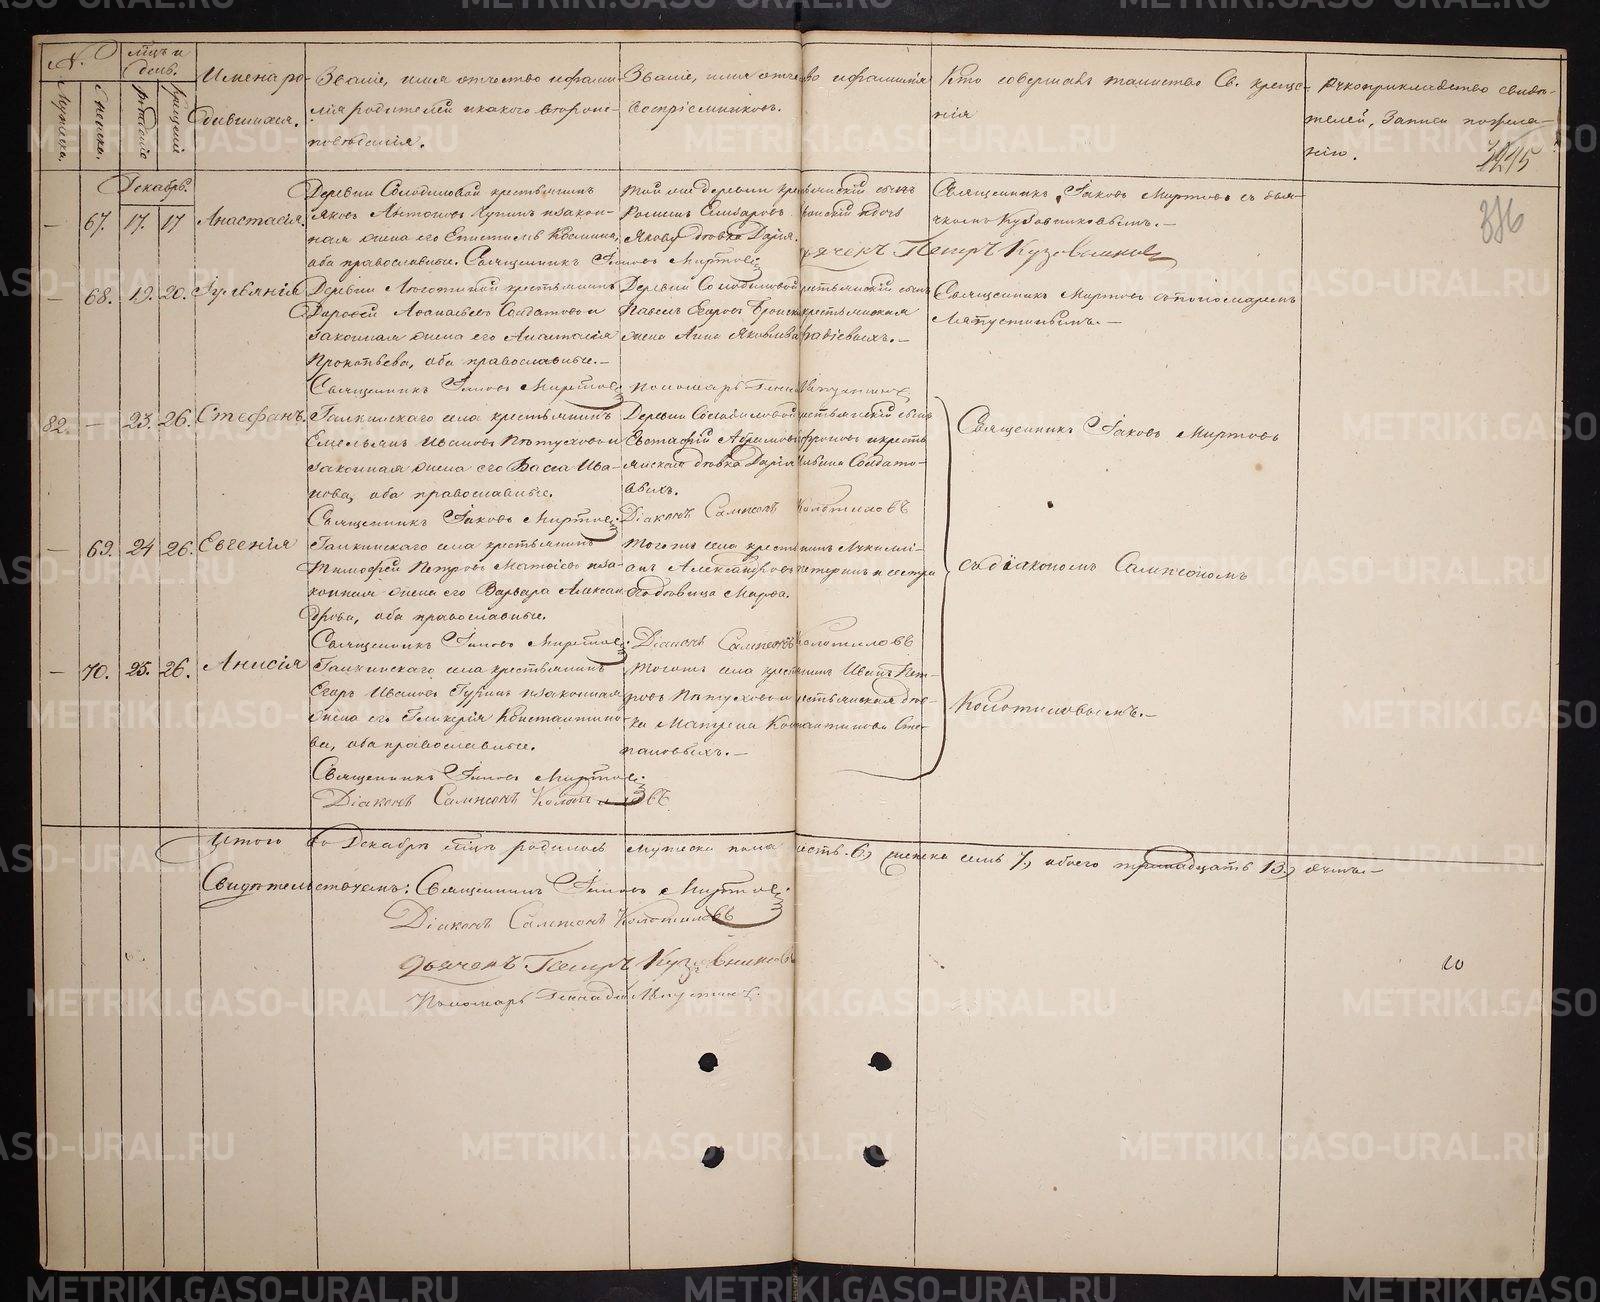 №.
мѣсяцъ и день.
Мужеска.
Женска.
рожденія
крещенія
Имена родившихся.
Званіе, имя отчество и фамилія родителей и какого вѣроисповѣданія.
Званіе, имя отчество и фамилія воспріемниковъ.
Кто совершалъ таинство Св. крещенія
рукоприкладство свидѣтелей, записи по желанію.
1215
336
Декабрь.
— 67. 17. 17 Анастасія.
Деревни Солодиловой крестьянинъ
Яковъ Антоновъ и закон-
ная жена его Епистимія Космина,
оба православные. Священникъ Іаковъ Миртовъ
той же деревни крестьянскій сынъ
и дочь
Якова дѣвка Дарія.
дьячекъ Петръ Кузовниковъ
Священникъ Іаковъ Миртовъ съ дья-
чкомъ Кузовниковымъ.—
— 68. 19. 20. Іуліянія
Деревни крестьянинъ
Дорофей Аѳанасьевъ Солдатовъ и
законная жена его Анастасія
Прокопьева, оба православные.—
Священникъ Іаковъ Миртовъ
Деревни Солодиловой крестьянскій сынъ
Павелъ Егоровъ крестьянская
жена Анна Яковлева
пономарь Геннадій Ляпустинъ
Священникъ Миртовъ съ пономаремъ
Ляпустинымъ.—
82. — 23. 26. Стефанъ.
Галкинскаго села крестьянинъ
Емельянъ Ивановъ Пѣтуховъ и
законная жена его Васса Ива-
нова, оба православные.
Священникъ Іаковъ Миртовъ
Деревни Солодиловой крестьянскій сынъ
Евстафій и кресть-
янская дѣвка Дарія Солдато-
выхъ.
Діаконъ Сампсонъ Колотиловъ
Священникъ Іаковъ Миртовъ
— 69. 24 26. Евгенія
Галкинскаго села крестьянинъ
Тимофей Петровъ и за-
конная жена его Варвара Алексан-
дрова, оба православные.
Священникъ Іаковъ Миртовъ
Тогожъ села крестьянинъ
Александровъ и сестра
Марѳа.
Діаконъ Сампсонъ Колотиловъ
съ діакономъ Сампсономъ
— 70. 25. 26. Анисія
Галкинскаго села крестьянинъ
Егоръ Ивановъ и законная
жена его Гликерія Константино-
ва, оба православные.
Священникъ Іаковъ Миртовъ
Діаконъ Сампсонъ Колотиловъ
Тогожъ села крестьянинъ Иванъ Пет-
ровъ Пѣтуховъ и крестьянская дѣв-
ка Матрена Константинова Сте-
пановыхъ.—
Колотиловымъ.—
Итого въ Декабрѣ мѣсяцѣ родилось мужеска пола шесть 6, женска семь 7, обоего тринадцать 13, душъ.—
Свидѣтельствуемъ: Священникъ Іаковъ Миртовъ
Діаконъ Сампсонъ Колотиловъ
дьячекъ Петръ Кузовниковъ
Пономарь Геннадій Ляпустинъ.
10
METRIKI.GASO-URAL.RU